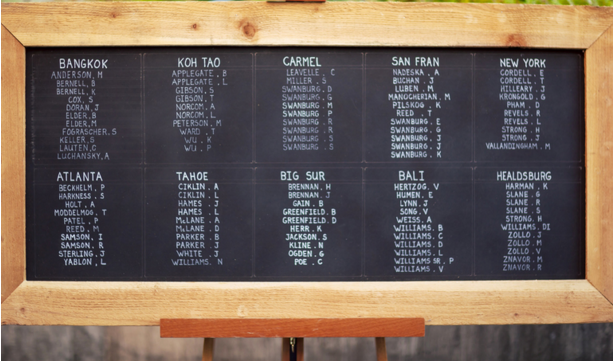 BANGKOK
ANDERSON, M
BERNELL, B
BERNELL, K
COX, S
DORAN, J
ELDER, B
ELDER, M
FOGRASCHER, S
KELLER, S
LAUTEN, C
LUCHANSKY, A
KOH TAO
APPLEGATE, B
APPLEGATE, L
GIBSON, S
GIBSON, T
NORCOM, A
NORCOM, L
PETERSON, M
WARD, T
WU, K
WU, P
CARMEL
LEAVELLE, C
MILLER, S
SWANBURG, D
SWANBURG, G
SWANBURG, M
SWANBURG, P
SWANBURG, R
SWANBURG, R
SWANBURG, S
SWANBURG, S
SAN FRAN
NADESKA, A
BUCHAN, J
LUBEN, M
MANOCHERIAN, M
PILSKOG, K
REED, T
SWANBURG, E
SWANBURG, G
SWANBURG, J
SWANBURG, J
SWANBURG, K
NEW YORK
CORDELL, E
CORDELL, T
HILLEARY, J
KRONGOLD, G
PHAM, D
REVELS, R
REVELS, L
STRONG, H
STRONG, J
VALLANDINGHAM, M
ATLANTA
BECKHELM, P
HARKNESS, S
HOLT, A
MODDELMOG, T
PATEL, P
REED, M
SAMSON, I
SAMSON, R
STERLING, J
YABLON, L
TAHOE
CIKLIN, A
CIKLIN, L
HAMES, J
HAMES, L
McLANE, A
McLANE, D
PARKER, B
PARKER, J
WHITE, J
WILLIAMS, N
BIG SUR
BRENNAN, H
BRENNAN, J
GAIN, B
GREENFIELD, B
GREENFIELD, D
HERR, K
JACKSON, S
KLINE, N
OGDEN, G
POE, C
BALI
HERTZOG, V
HUMEN, E
LYNN, J
SONG, V
WEISS, A
WILLIAMS, B
WILLIAMS, C
WILLIAMS, D
WILLIAMS, L
WILLIAMS SR, P
WILLIAMS, V
HEALDSBURG
HARMAN, K
SLANE, G
SLANE, R
SLANE, S
STRONG, H
WILLIAMS, DI
ZOLLO, J
ZOLLO, M
ZOLLO, V
ZNAVOR, M
ZNAVOR, R